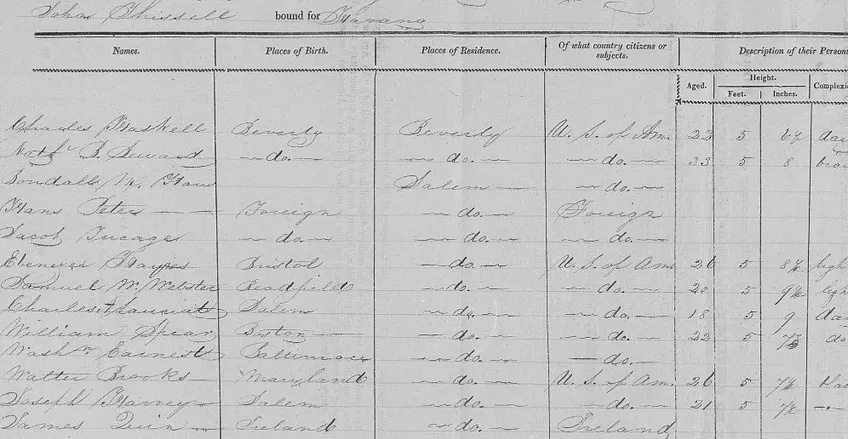 John Thissell bound for Havana
Names. Places of Birth. Places of Residence. Of what country citizens or subjects. Description of their Person
Aged. Height. Complexi
Feet. Inches.
Charles Haskell Beverly Beverly U. S. of Am. 22 5 6½ dar
B. Seward — do. — — do. — — do. — 33 5 8 brow
M. Salem — — do. —
Hans Peter — Foreign — do. — Foreign
Jacob — do. — — do. — — do. —
Ebenezer Bristol — do. — U. S. of Am. 26 5 8½ ligh
Samuel W. Webster Readfield — do. — — do. — 5 9½ ligh
Charles Salem — do. — — do. — 18 5 9 da
William Spear Boston — — do. — — do. — 22 5 do
Washn Earnest Baltimore — do. — — do. —
Walter Brooks Maryland — do. — U. S. of Am. 26 5 7½ blac
Joseph Salem — do. — — do. — 21 5 7½ — " —
James Quin — Ireland — do. — Ireland